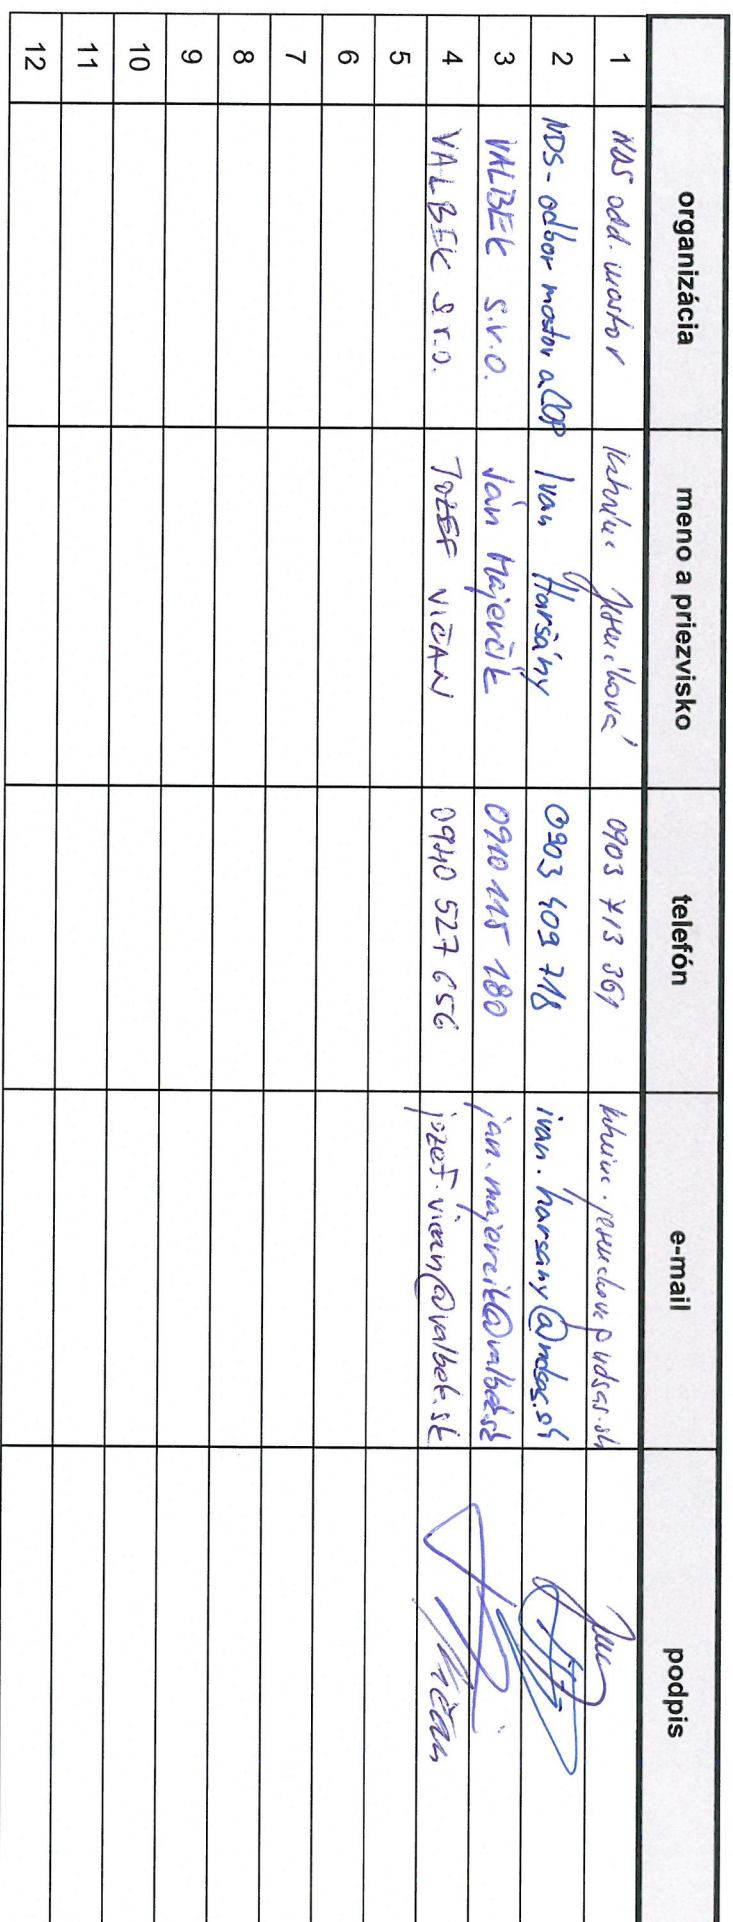 organizácia meno a priezvisko telefón e-mail podpis
1 NDS odd. mostov 0903 713 361
2 NDS - odbor mostov a Ivan Harsány 0903 409 718 ivan.harsany@ndsas.sk
3 VALBEK s.r.o. Ján Majerčík 0910 115 180 jan.majercik@valbek.sk
4 VALBEK s.r.o. JOZEF VIČAN 527 656 jozef.vican@valbek.sk Vičan
5
6
7
8
9
10
11
12